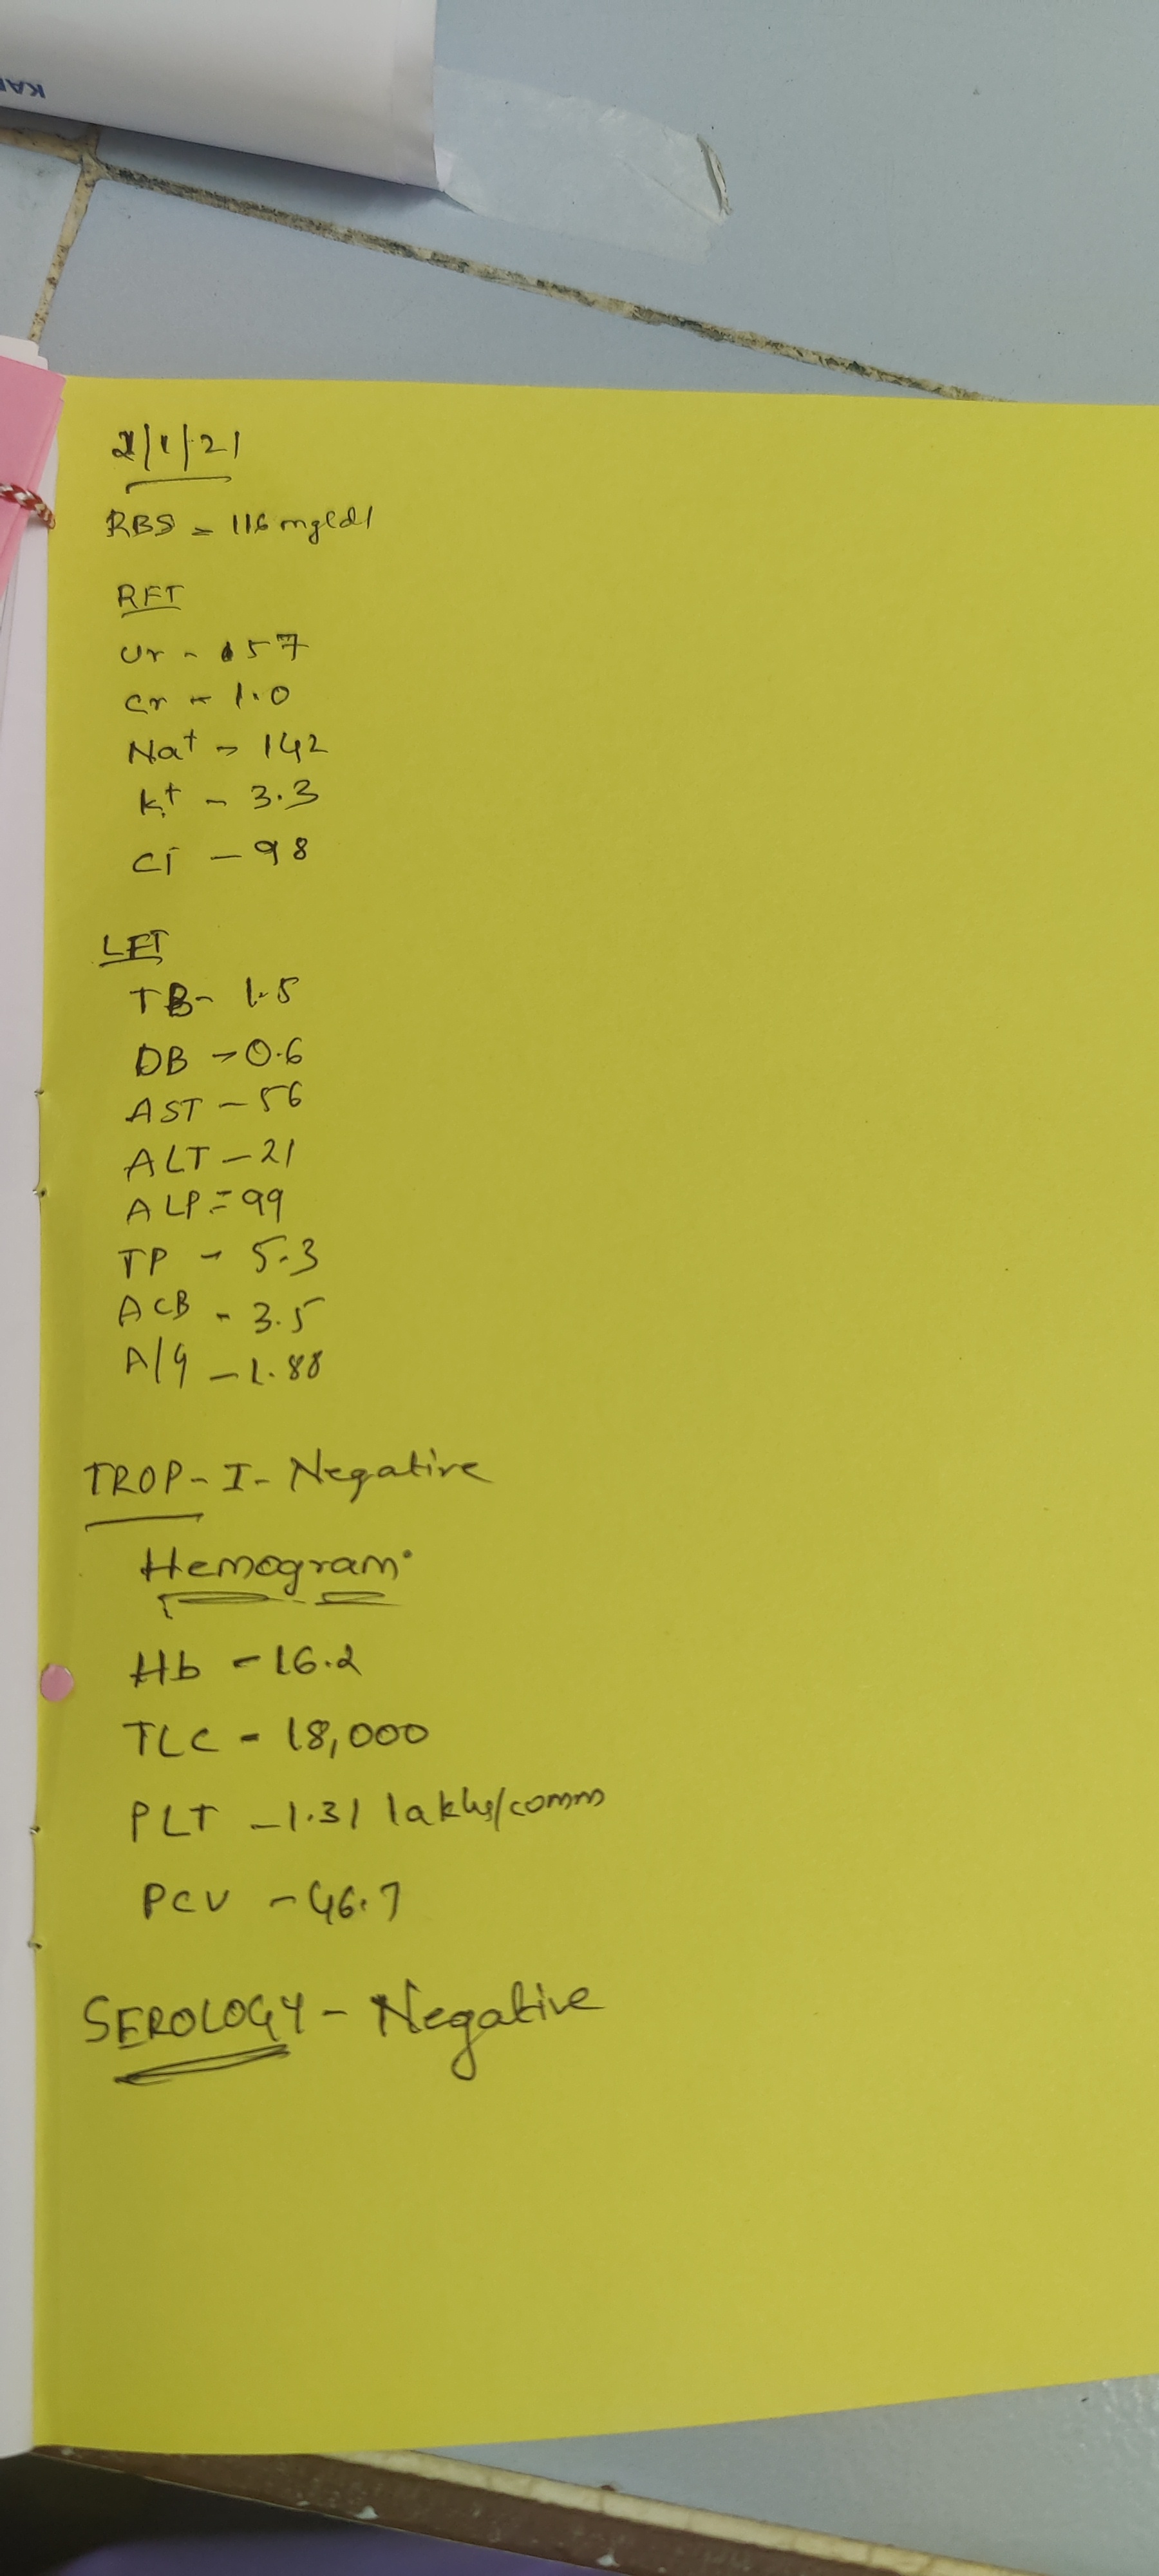 KAM
2/1/21
RBS = 116 mg/dl
RFT
Ur - 57
Cr - 1.0
Na+ - 142
K+ - 3.3
Cl - 98
LFT
TB - 1.5
DB - 0.6
AST - 56
ALT - 21
ALP = 99
TP - 5.3
ACB - 3.5
A/G - 1.88
TROP - I - Negative
Hemogram
Hb - 16.2
TLC - 18,000
PLT - 1.31 lakhs/comm
PCV - 46.7
SEROLOGY - Negative